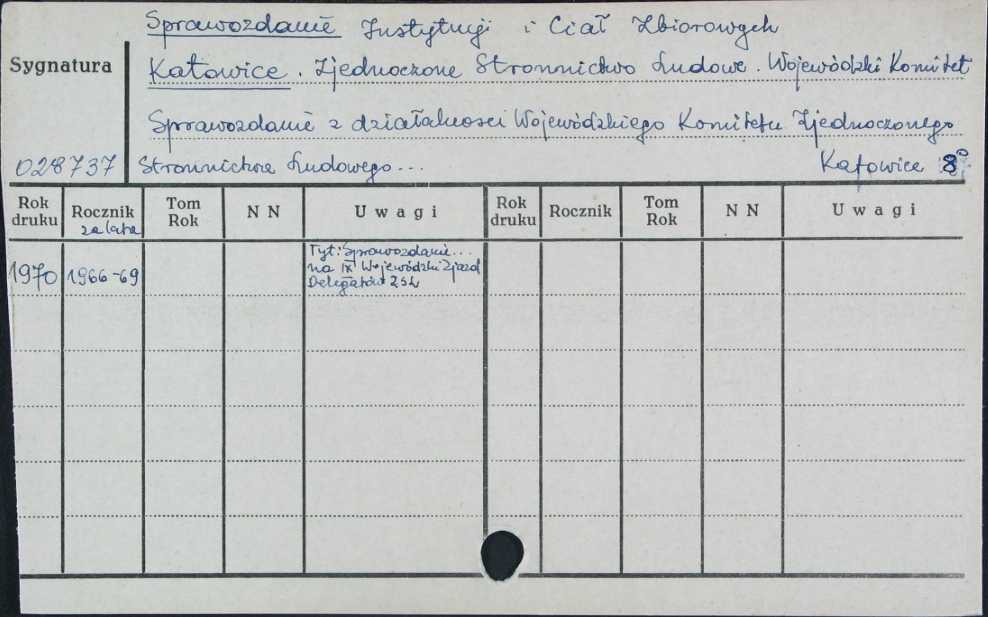 Sprawozdanie Instytucji i Ciał Zbiorowych
Sygnatura
Katowice. Zjednoczone Stronnictwo Ludowe. Wojewódzki Komitet
Sprawozdanie z działalności Wojewódzkiego Komitetu Zjednoczonego
028737 Stronnictwa Ludowego... Katowice 8°
Rok druku Rocznik za lata Tom Rok N N Uwagi Rok druku Rocznik Tom Rok N N Uwagi
1970 1966-69 Tyt: Sprawozdanie...
na IX Wojewódzki Zjazd
Delegatów ZSL